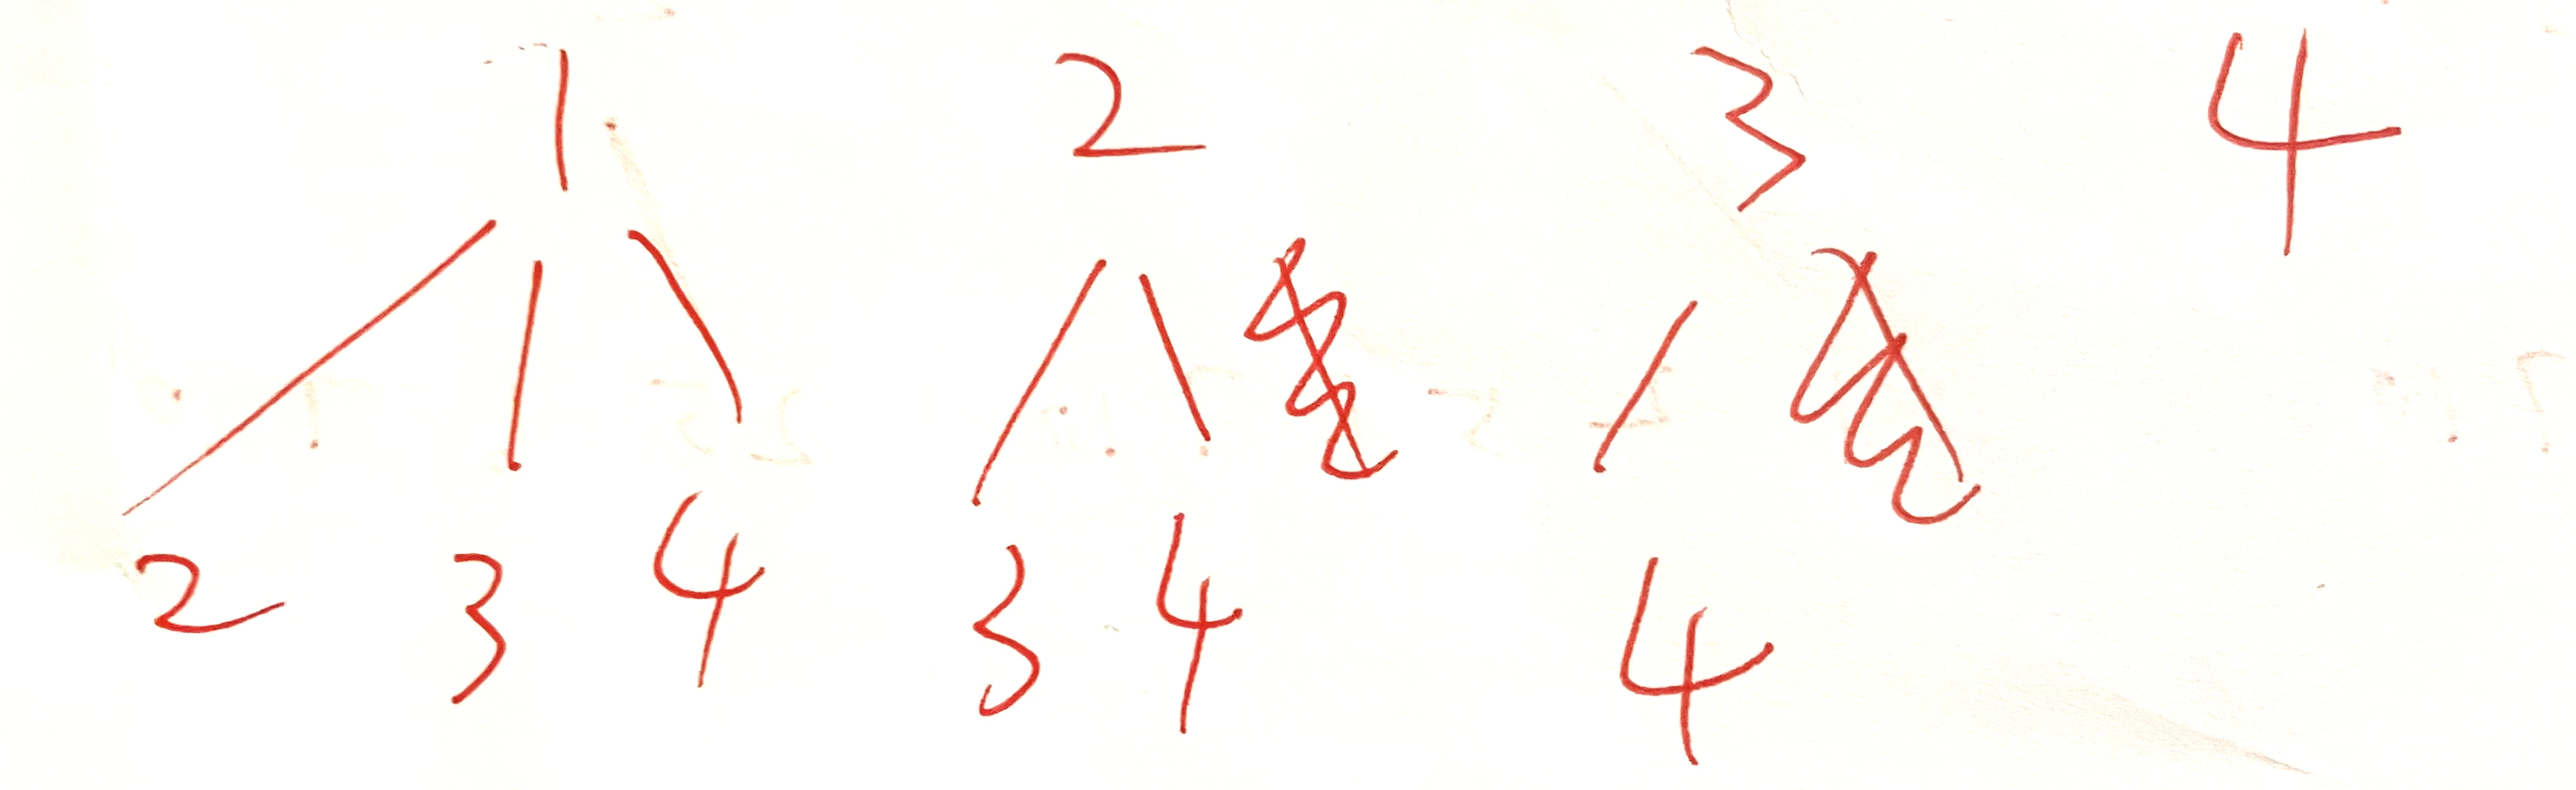 1 2 3 4
2 3 4 3 4 4